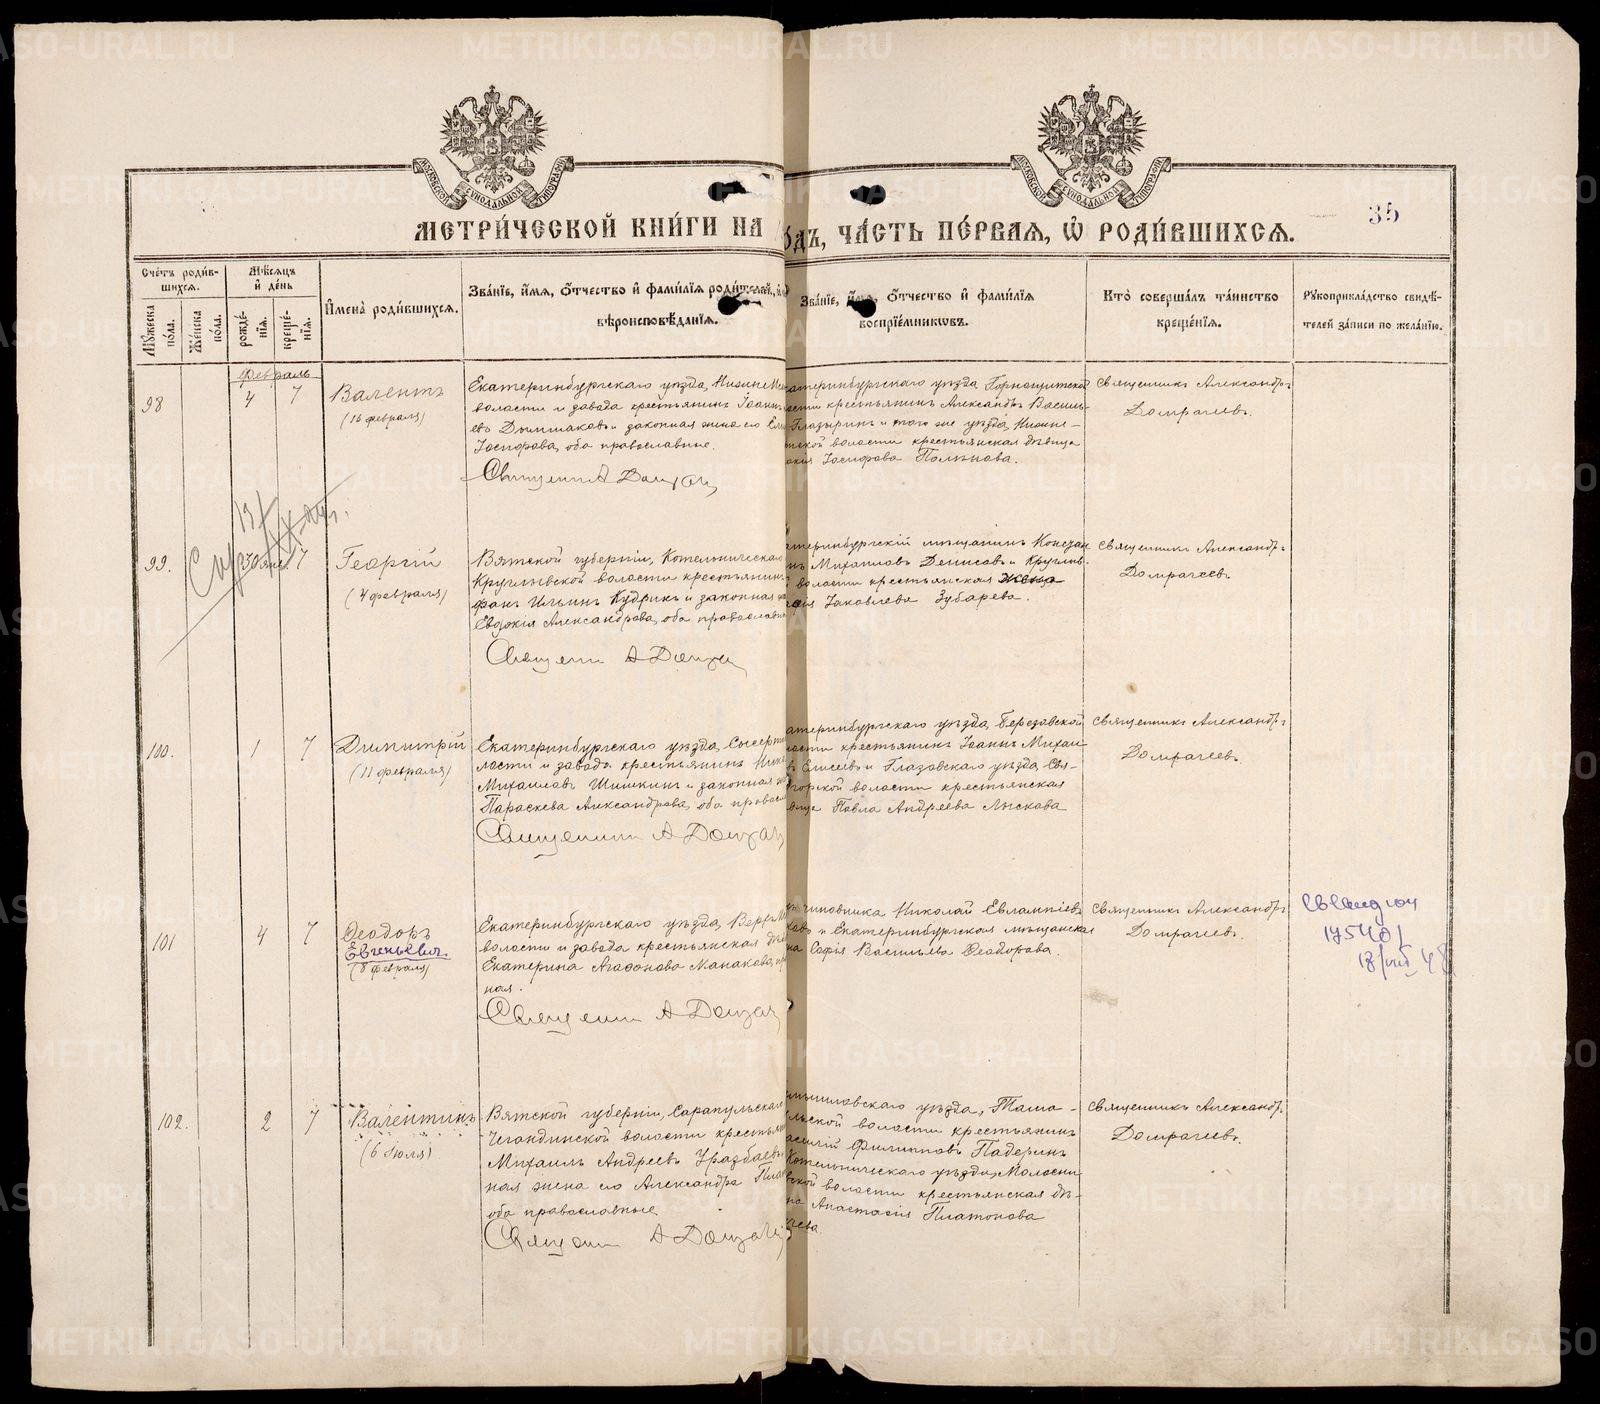 МОСКОВСКОЙ СѴНОДАЛЬНОЙ ТИПОГРАФІИ
МОСКОВСКОЙ СѴНОДАЛЬНОЙ ТИПОГРАФІИ
МЕТРИ́ЧЕСКОЙ КНИ́ГИ НА
ДЪ, ЧА́СТЬ ПЕ́РВАЯ, Ѡ РОДИ́ВШИХСЯ.
35
Сче́тъ роди́в-
шихся.
Мѣсяцъ
и де́нь
Му́жеска
по́ла.
Же́нска
по́ла.
рожде́-
нія.
креще́-
нія.
Имена̀ роди́вшихся.
Зва́ніе, и́мя, о́тчество и фами́лія роди́телей,
вѣроисповѣ́данія.
Зва́ніе, и́мя, о́тчество и фами́лія
воспріе́мниковъ.
Кто̀ соверша́лъ та́инство
креще́нія.
Рукоприкла́дство свидѣ́-
телей за́писи по жела́нію.
февраль
98
4
7
Валентъ
(16 февраля)
Екатеринбургскаго уѣзда, Нижне
волости и завода крестьянинъ Іоаннъ
евъ Дымшаковъ и законная жена его
Іосифова, оба православные.
Священникъ А Домрач
катеринбургскаго уѣзда Горнощитской
ости крестьянинъ Александръ Василь-
Глазыринъ и того же уѣзда, Нижне-
ской волости крестьянская дѣвица
Іосифова Полѣнова.
Священникъ Александръ
Домрачевъ.
99.
30 янв
7
Георгій
(4 февраля)
Вятской губерніи, Котельническа
волости крестьянинъ
фанъ Ильинъ Кудринъ и законная
Евдокія Александрова, оба православн
Священникъ А Домра
катеринбургскій мѣщанинъ
нъ Михаиловъ Денисовъ и
волости крестьянская жена
фія Іаковлева Зубарева.
Священникъ Александръ
Домрачевъ
100.
1
7
Димитрій
(11 февраля)
Екатеринбургскаго уѣзда, Сысерт
лости и завода крестьянинъ Нико
Михаиловъ Шишкинъ и законная же
Параскева Александрова, оба правосл
Священникъ А Домрач
катеринбургскаго уѣзда, Березовской
ости крестьянинъ Іоаннъ Михаи-
въ Елисеевъ и Глазовскаго уѣзда, Свя-
горской волости крестьянская
вица Павла Андреева Лыскова
Священникъ Александръ
Домрачевъ.
101
4
7
Ѳеодоръ
Евгеньевич.
(8 февраля)
Екатеринбургскаго уѣзда, Верх
волости и завода крестьянская дѣв
Екатерина Агафонова Манакова, пр
ная.
Священникъ А Домрач
чиновника Николай Евлампіевъ
ковъ и Екатеринбургская мѣщанская
на Софія Васильева Ѳеодорова.
Священникъ Александръ
Домрачевъ.
102.
2
7
Валентинъ
(6 Іюля)
Вятской губерніи, Сарапульскаго
Чегандинской волости крестьян
Михаилъ Андреевъ Уразбаевъ
ная жена его Александра
оба православные
Священникъ А Домрач
мышловскаго уѣзда,
льской волости крестьянинъ
асилій Филипповъ Падеринъ
Котельническаго уѣзда,
вской волости крестьянская дѣ-
ца Анастасія Платонова
Священникъ Александръ
Домрачевъ.
METRIKI.GASO-URAL.RU